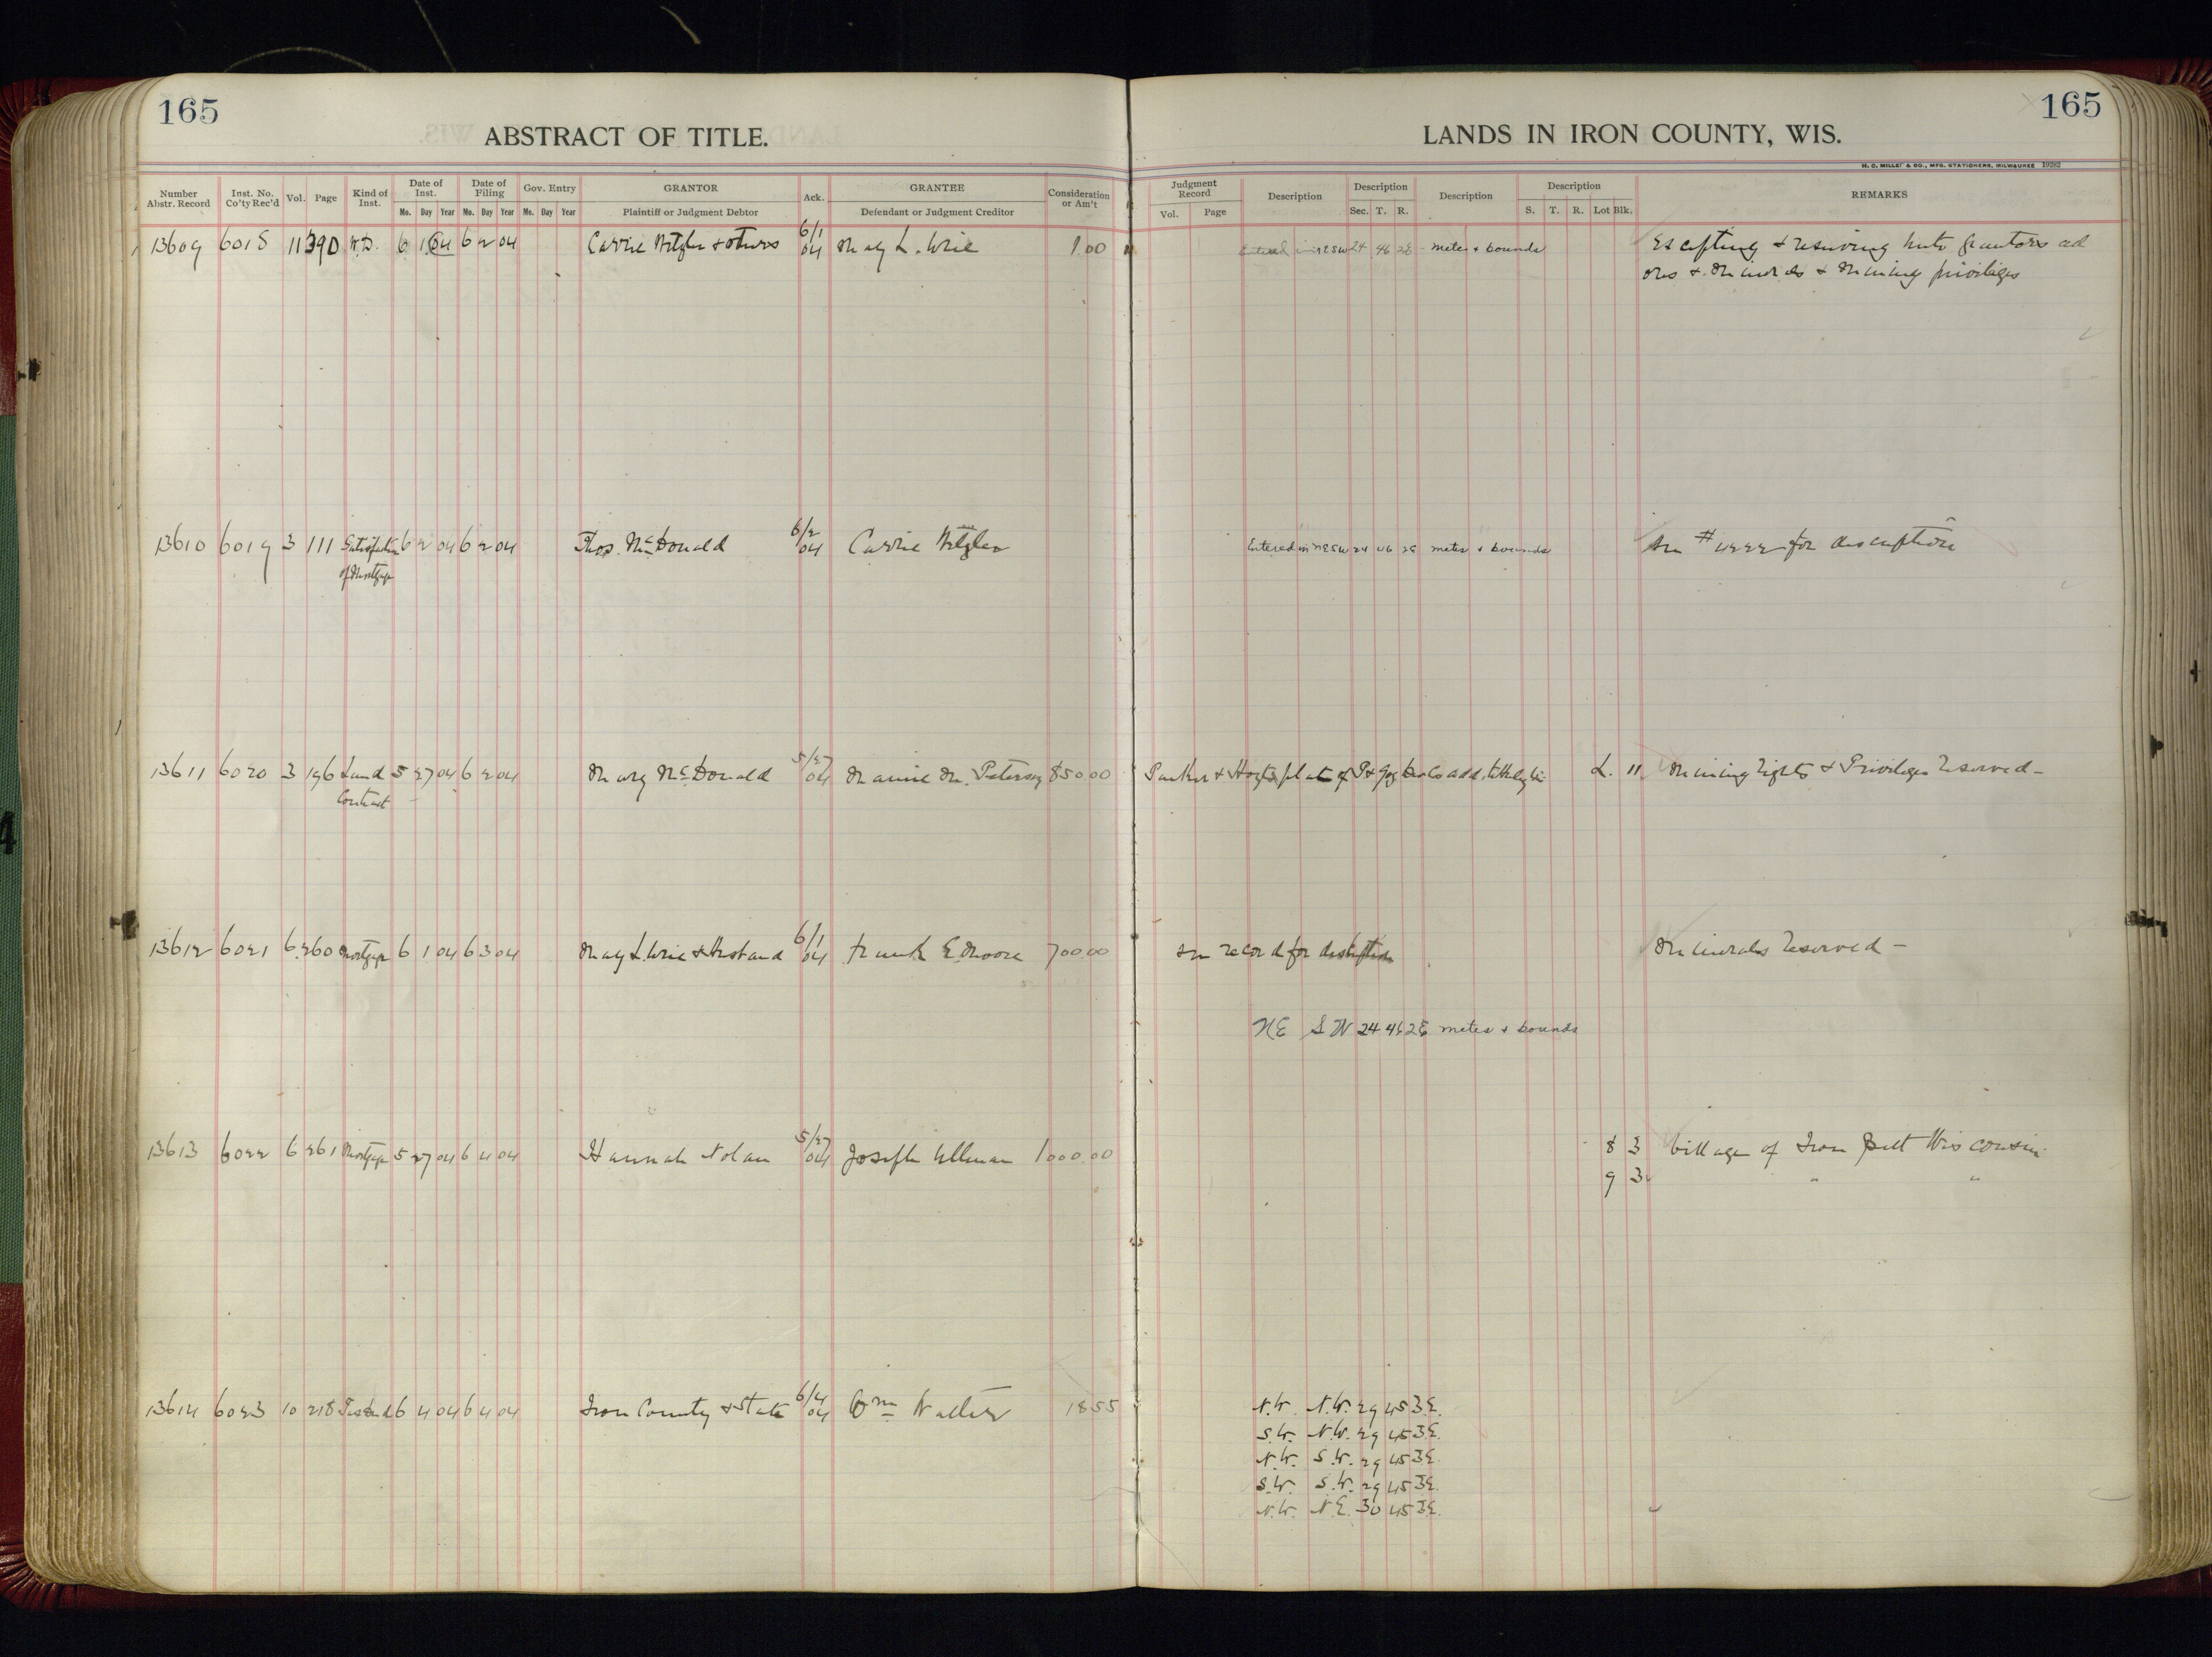 165
ABSTRACT OF TITLE.
Number Abstr. Record Inst. No. Co'ty Rec'd Vol. Page Kind of Inst. Date of Inst. Mo. Day Year Date of Filing Mo. Day Year Gov. Entry Mo. Day Year GRANTOR Plaintiff or Judgment Debtor Ack. GRANTEE Defendant or Judgment Creditor Consideration or Am't
13609 6018 11 390 W.D. 6 1 04 6 2 04 Carrie & others 6/1 04 May L. 1.00
13610 6019 3 111 Satisfaction 6 2 04 6 2 04 Thos. McDonald 6/2 04 Carrie
of Mortgage
13611 6020 3 196 Land 5 27 04 6 2 04 Mary McDonald 5/27 04 Mamie M. Peterson 850.00
Contract
13612 6021 6 260 Mortgage 6 1 04 6 3 04 May L. & Husband 6/1 04 Frank E. Moore 700.00
13613 6022 6 261 Mortgage 5 27 04 6 4 04 Hannah Nolan 5/27 04 Joseph Ullman 1000.00
13614 6023 10 218 Tax Deed 6 4 04 6 4 04 Iron County & State 6/4 04 Wm Walter 18.55
165
LANDS IN IRON COUNTY, WIS.
H. C. MILLER & CO., MFG. STATIONERS, MILWAUKEE 19282
Judgment Record Vol. Page Description Description Sec. T. R. Description Description S. T. R. Lot Blk. REMARKS
Entered in NE SW 24 46 2E metes & bounds Excepting & reserving unto grantors all
ores & minerals & mining privileges
Entered in NE SW 24 46 2E metes & bounds See # 4222 for description
Parker & Hoyt's plat of add. L. 11 Mining rights & Privileges reserved -
See record for description Minerals reserved -
NE SW 24 46 2E metes & bounds
8 3 Village of Iron Belt Wisconsin
9 3 " "
N.W. N.W. 29 45 3E.
S.W. N.W. 29 45 3E.
N.W. S.W. 29 45 3E.
S.W. S.W. 29 45 3E.
N.W. N.E. 30 45 3E.